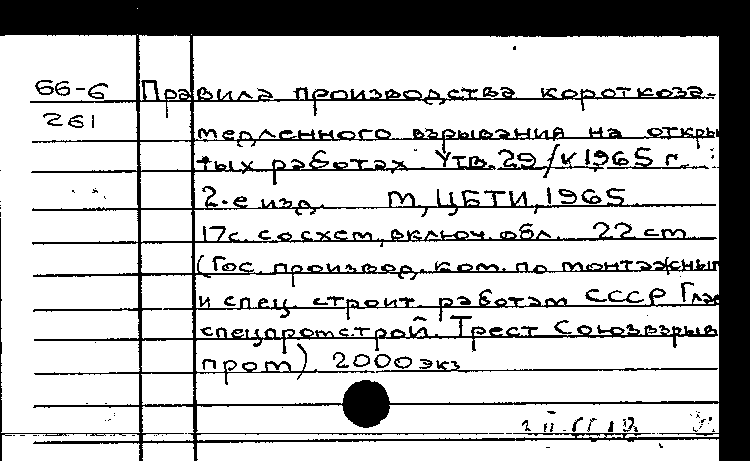 66-6 Правила производства короткоза-
261
медленного взрывания на откры
тых работах Утв. 29/XI 1965 г.
2-е изд. М, ЦБТИ, 1965
17с. со схем, включ. обл. 22 см
(Гос. производ. ком. по монтажным
и спец. строит. работам СССР Глав
спецпромстрой. Трест Союзвзрыв
пром). 2000 экз